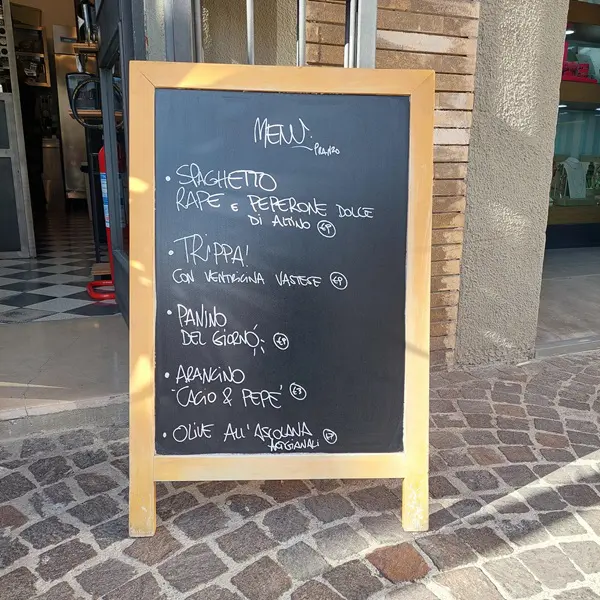 MENÙ
PRANZO
• SPAGHETTO
RAPE E PEPERONE DOLCE
DI ALTINO
• TRIPPA!
CON VENTRICINA VASTESE
• PANINO
DEL GIORNO
• ARANCINO
"CACIO & PEPE"
• OLIVE ALL'ASCOLANA
ARTIGIANALI